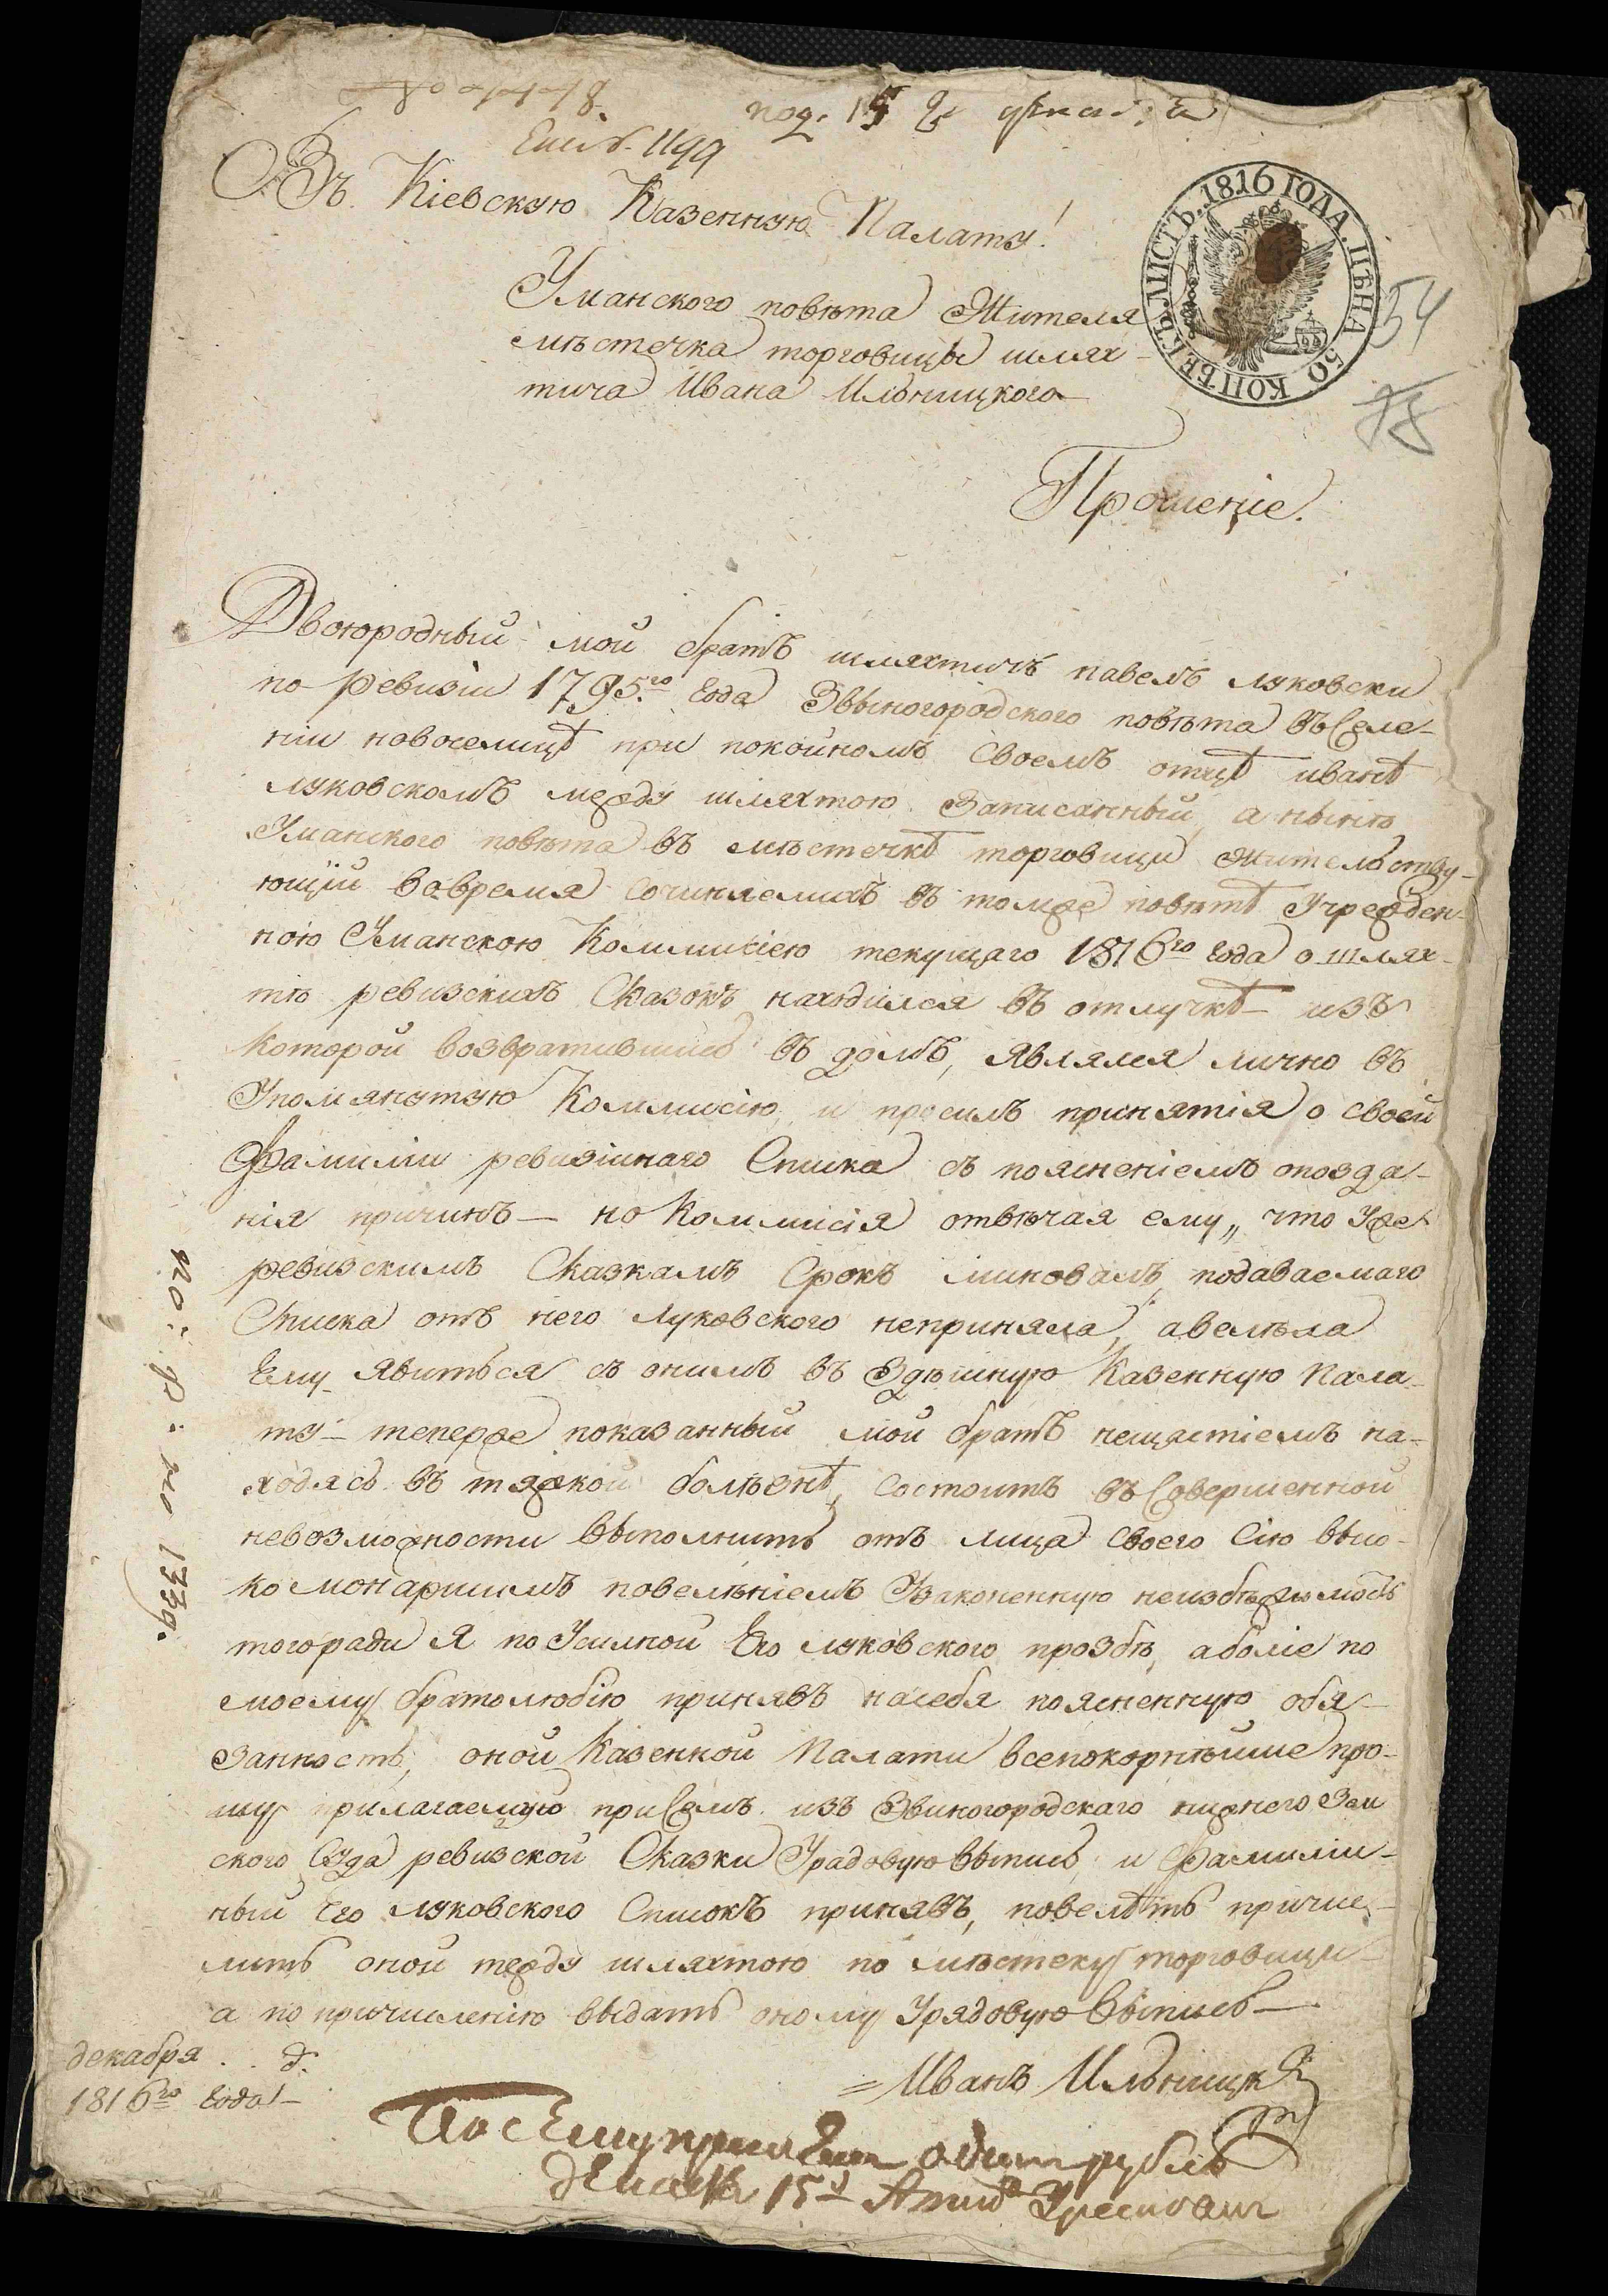 под. 15 декаб.
1199
Въ Кіевскую Казенную Палату!
ЛИСТЪ. 1816 ГОДА. ЦѢНА 50 КОПѢЕКЪ.
54
Уманского повѣта Жителя
мѣстечка торговицы шлях-
тича Ивана Ильницкого
Прошеніе.
Двоюродный мой братъ шляхтичъ павелъ луковски
по ревизіи 1795.го Года Звыногородского повѣта въ Селе-
ніи новоселицѣ при покойномъ своемъ отцѣ иванѣ
луковскомъ между шляхтою Записанный, а нынѣ
Уманского повѣта въ мѣстечкѣ торговици Жительству-
ющій вовремя сочиняемихъ въ томже повѣтѣ Учрежден-
ною Уманскою Коммисіею текущаго 1816го Года о шлях-
тѣ ревизскихъ Сказокъ находился въ отлучкѣ – изъ
Которой возвратившись въ домъ, являлся лично въ
Упомянутую Коммисію, и просилъ принятія о своей
Фамиліи ревизійнаго Списка съ поясненіемъ опозда-
нія причинъ – но Коммисія отвѣчая ему„ что Уже
ревизскимъ Сказкамъ Срокъ миновалъ, подаваемаго
Списка отъ него луковского неприняла, авелѣла
Ему явиться съ онимъ въ Здѣшную Казенную Пала-
ту – теперже показанный мой братъ нещастіемъ на-
ходясь въ тяжкой болѣзнѣ, состоитъ въ Совершенной
невозможности выполнить отъ лица своего Сію высо-
ко монаршимъ повелѣніемъ Узаконенную неизбѣжимость
тогоради Я по Усилной Его луковского прозбѣ, аболіе по
моему братолюбію принявъ насебя поясненную обя-
занность, оной Казенной Палати всепокорнѣйше про-
шу прилагаемую приСемъ изъ Звиногородскаго нижнего Зем
ского Суда ревизской Сказки Урядовую выпись, и Фамилій-
ный Его луковского Списокъ принявъ, повелѣть причис-
лить оной между шляхтою по мѣстеку торговици
а по причисленію выдать оному Урядовую Выпись –
декабря . . д.
1816го Года –
Иванъ Ильницкій
По Сему принялъ одинъ рубль
декабр 15
1339.